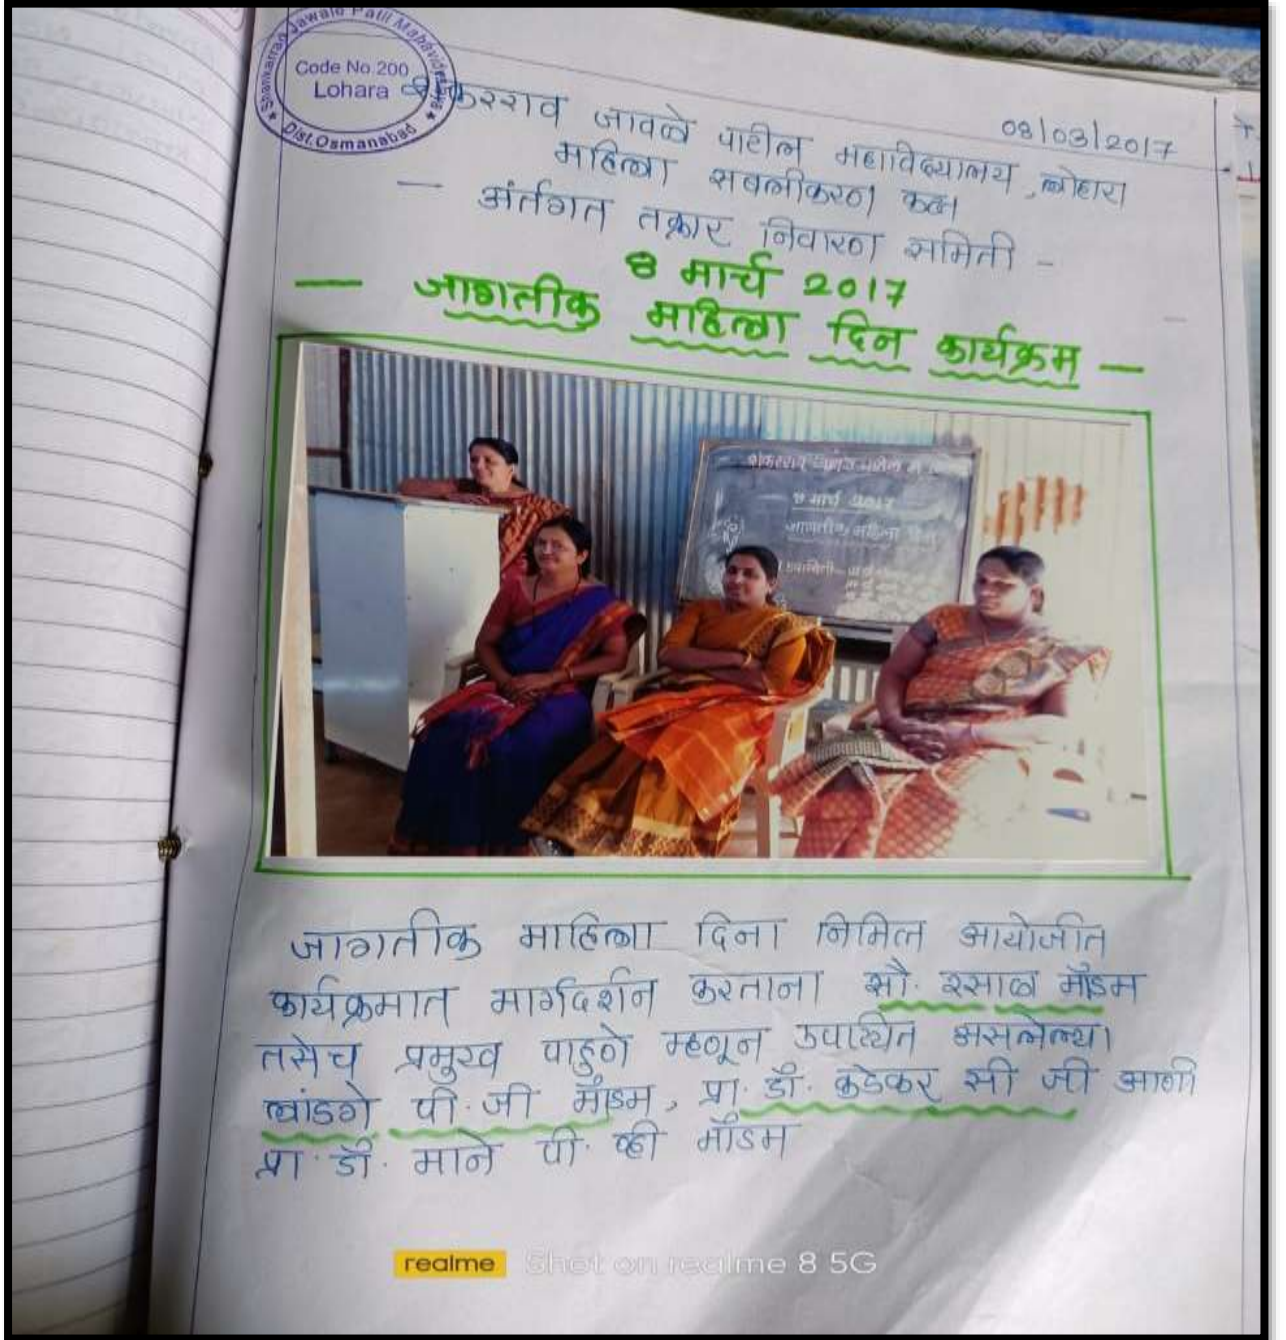 Shankarrao Jawale Patil Mahavidyalaya
Code No.200
Lohara
Dist.Osmanabad
08/03/2017
शंकरराव जावळे पाटील महाविद्यालय, लोहारा
महिला सबलीकरण कक्ष
— अंर्तगत तक्रार निवारण समिती -
8 मार्च 2017
— जागतीक महिला दिन कार्यक्रम —
शंकरराव जावळे पाटील म
8 मार्च 2017
जागतीक महिला दिन
जागतीक माहिला दिना निमित्त आयोजीत
कार्यक्रमात मार्गदर्शन करताना सौ. रसाळ मॅडम
तसेच प्रमुख पाहुणे म्हणून उपास्थित असलेल्या
लांडगे पी. जी मॅडम, प्रा. डॉ. कुडेकर सी जी आणी
प्रा. डॉ. माने पी. व्ही मॅडम
realme Shot on realme 8 5G